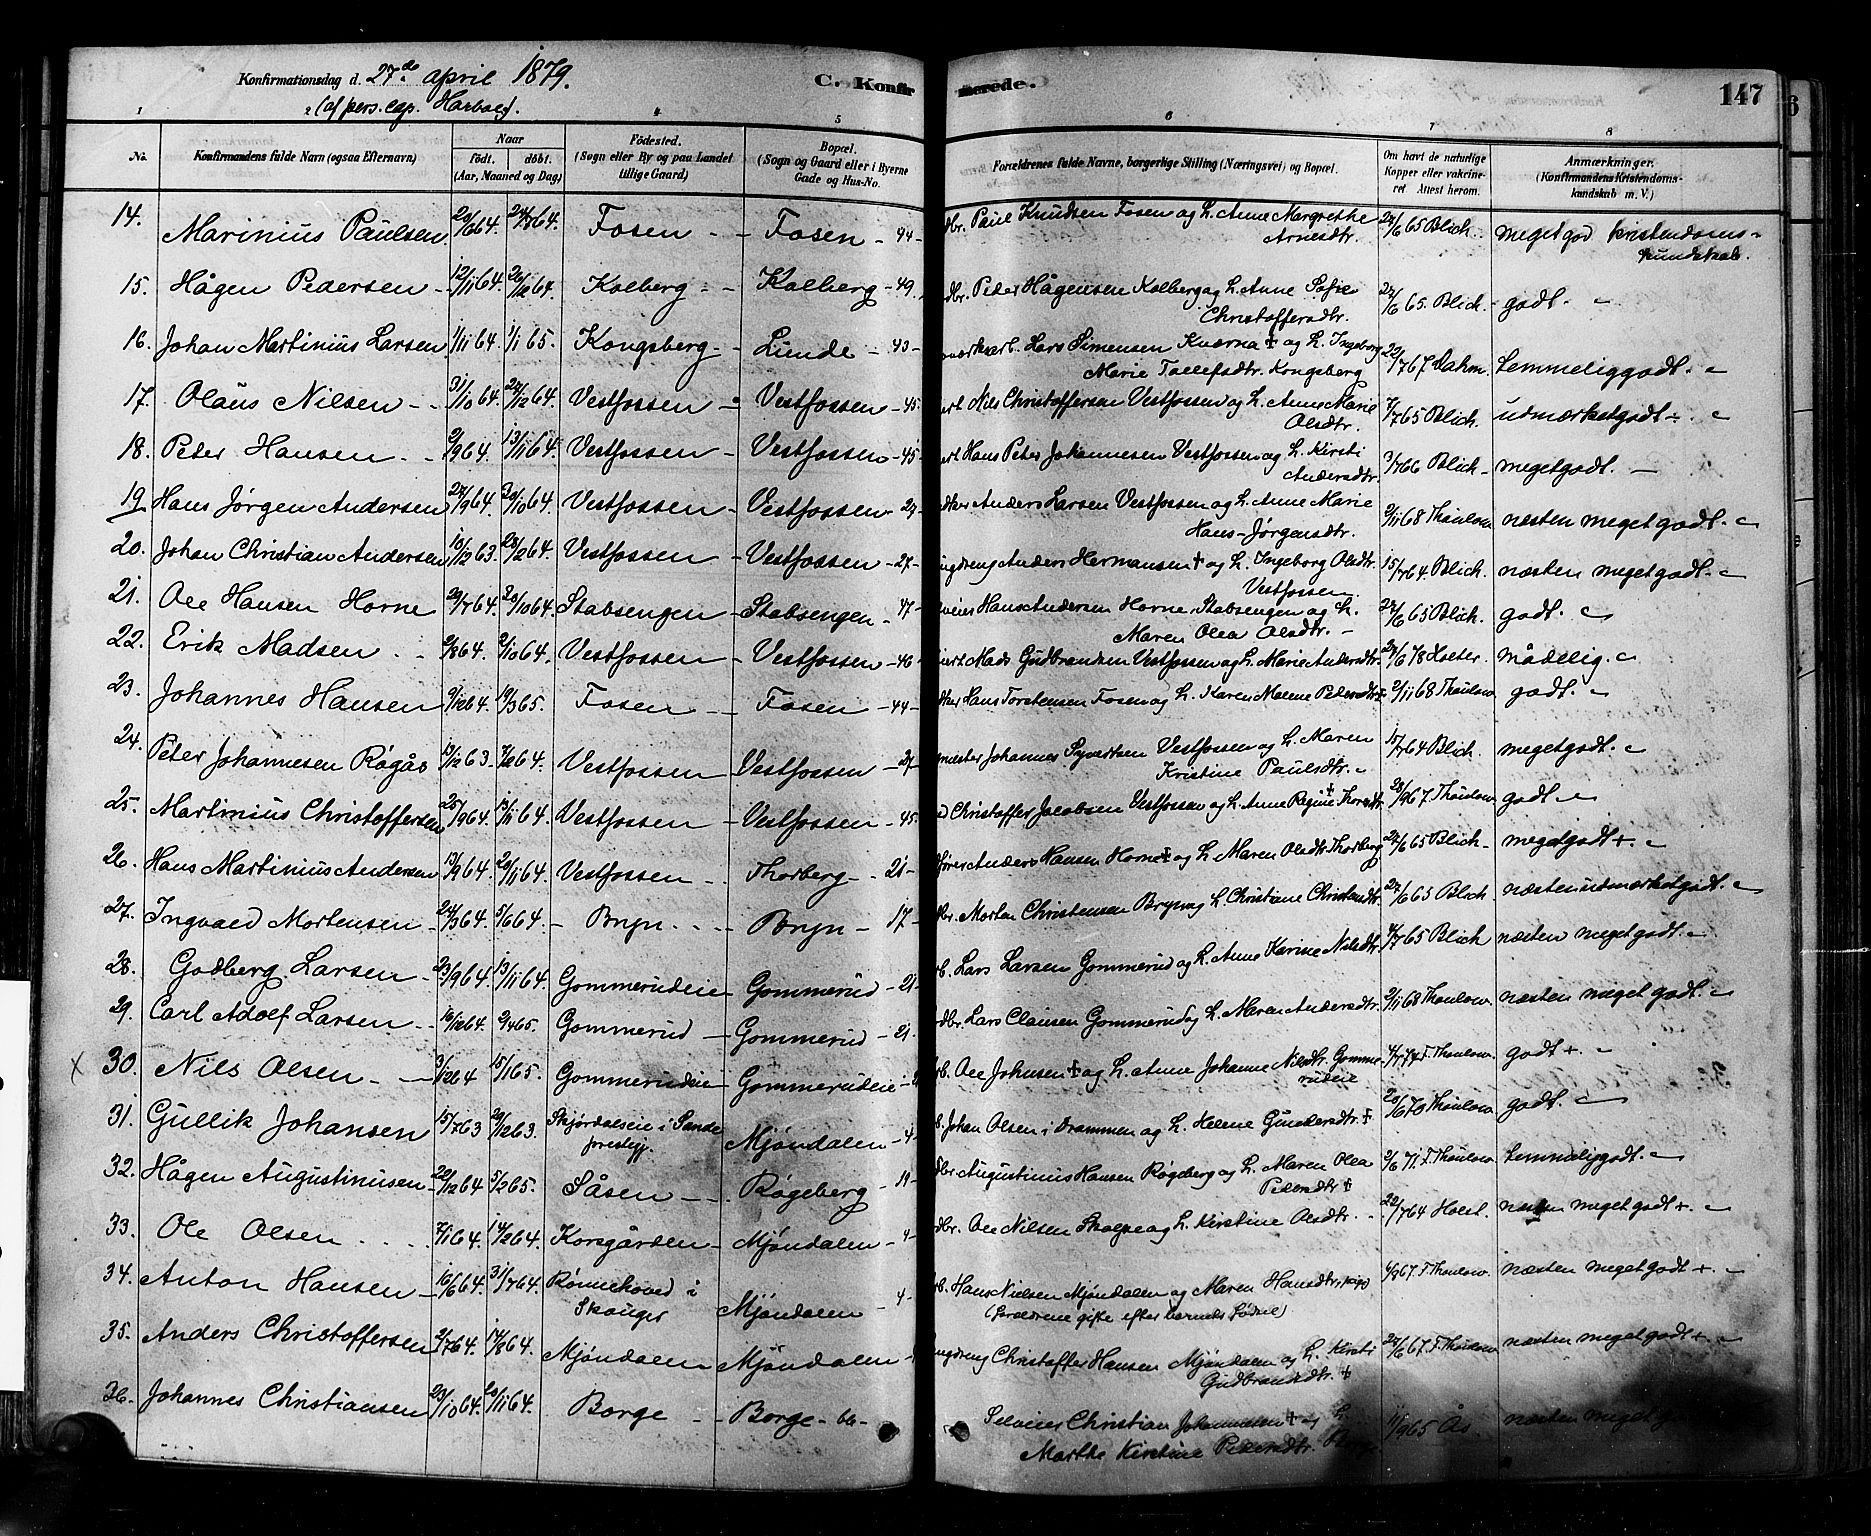 Konfirmationsdag d. 27de april 1879. C. Konfir merede. 147
(af pers. cap. Harboe).
1 2 4 5 6 7 8
No. Konfirmandens fulde Navn (ogsaa Efternavn) Naar født. døbt. (Aar, Maaned og Dag) Fødested. (Sogn eller By og paa Landet tillige Gaard) Bopæl. (Sogn og Gaard eller i Byerne Gade og Hus-No. Forældrenes fulde Navne, borgerlige Stilling (Næringsvei) og Bopæl. Om havt de naturlige Kopper eller vakcineret Attest herom. Anmærkninger. (Konfirmandens Kristendomskundskab m. V.)
14. Marinius Paulsen 20/6 64. 24/7 64. Fosen - Fosen - 44 - dbr. Paul Knudsen Fosen og h. Anne Margrethe Arnesdtr. 27/6 65 Blich. meget god kristendomskundskab.
15. Hågen Pedersen - 12/11 64. 26/12 64. Kolberg - Kolberg - 49. dbr. Peder Hågensen Kolberg og h. Anne Sofie Christoffersdtr. 27/6 65. Blich - godt. -
16. Johan Martinius Larsen 1/11 64. 1/1 65. Kongsberg - Lunde - 43 - Lars Simensen Kværna + og h. Ingeborg Marie Tollefsdtr. Kongsberg 22/7 67 Dahm. temmelig godt. -
17. Olaus Nilsen - 31/10 64. 27/12 64. Vestfossen - Vestfossen - 45 - Nils Christoffersen Vestfossen og h. Anne Marie Olsdtr. 7/7 65 Blich. udmærket godt +. -
18. Peter Hansen - 9/9 64. 13/11 64. Vestfossen Vestfossen - 45 - Hans Peter Johannesen Vestfossen og h. Kirsti Andersdtr. 3/7 66 Blich - meget godt. -
19 Hans Jørgen Andersen 27/9 64. 30/10 64. Vestfossen - Vestfossen - 29 - Anders Larsen Vestfossen og h. Anne Marie Hans-Jørgensdtr. 2/11 68 Thaulow næsten meget godt. -
20. Johan Christian Andersen 18/12 63. 28/2 64. Vestfossen - Vestfossen - 27 - Anders Hermansen + og h. Ingeborg Olsdtr. Vestfossen 15/7 64. Blich. næsten meget godt. -
21. Ole Hansen Horne 29/7 64. 30/10 64. Stabsengen - Stabsengen - 47 - Hans Andersen Horne, Stabsengen og h. Maren Olea Olsdtr. - 27/6 65 Blich. godt. -
22. Erik Madsen - 9/8 64. 2/10 64. Vestfossen - Vestfossen - 46 - Mads Gudbrandsen Vestfossen og h. Marie Andersdtr. 27/6 78 mådelig. -
23. Johannes Hansen 9/12 64. 19/3 65. Fosen - Fosen - 44 - Hans Torstensen Fosen og h. Karen Malene Pedersdtr + 2/11 68 Thaulow godt. -
24. Peter Johannesen Røgås 13/12 63. 7/2 64. Vestfossen Vestfossen - 27 - Johannes Syvertsen Vestfossen og h. Maren Kristine Paulsdtr. - 15/7 64 Blich. meget godt. -
25. Martinius Christoffersen 25/9 64. 13/11 64. Vestfossen - Vestfossen - 45 - Christoffer Jacobsen Vestfossen og h. Anne Regine + Thorsdtr. 28/9 67. Thaulow godt. -
26. Hans Martinius Andersen 13/9 64. 20/11 64. Vestfossen - Thorberg - 21 - Anders Hansen Horne + og h. Maren Olsdtr. Thorberg 27/6 65 Blich - meget godt +. -
27. Ingvald Mortensen - 24/3 64. 5/6 64. - Bryn - Bryn - 17 - Morten Christensen Bryn og h. Christiane Christiansdtr. 27/6 65 Blich - næsten udmærket godt. -
28. Godberg Larsen 23/9 64. 13/11 64. Gommerudeie - Gommerud - 21 - Lars Larsen Gommerud og h. Anne Karine Nilsdtr. 7/7 65 Blich næsten meget godt. -
29. Carl Adolf Larsen - 16/12 64. 9/4 65. Gommerud - Gommerud - 21 - dbr. Lars Clausen Gommerud og h. Maren Andersdtr. 2/11 68 Thaulow. næsten meget godt. -
x 30. Nils Olsen - 3/12 64 15/1 65. Gommerudeie Gommerudeie - Ole Johnsen + og h. Anne Johanne Nilsdtr. Gommerudeie 4/7 74 F. Thaulow. godt +. -
31. Gullik Johansen 15/7 63 29/12 63. Skjørdalseie i Sande prestgj. Mjøndalen - 4 - Johan Olsen i Drammen og h. Helene Gundersdtr. + 20/6 70 Thaulow. godt. -
32. Hågen Augustinusen - 22/12 64 5/2 65. Såsen - Røgeberg - 19 - dbr Augustinus Hansen Røgeberg og h. Maren Olea Pedersdtr + 2/6 71. F. Thaulow. temmelig godt. -
33. Ole Olsen - 7/1 64. 14/2 64. Korsgården - Mjøndalen - 4 - dbr. Ole Nilsen Skalpe og h. Kirstine Olsdtr. - 22/7 64 Holst. næsten meget godt +. -
34. Anton Hansen - 16/6 64. 31/7 64. Rønnehoved i Skouger Mjøndalen - 4 - Hans Nielsen Mjøndalen og Maren Hansdtr. (forældrene gifte efter barnets fødsel) 4/8 67. F. Thaulow. næsten meget godt +. -
35. Anders Christoffersen 2/7 64. 14/8 64. Mjøndalen - Mjøndalen - Christoffer Hansen Mjøndalen og h. Kirsti Gudbrandsdtr. + 27/6 67. F. Thaulow næsten meget godt +. -
36. Johannes Christiansen 23/10 64. 20/11 64. Borge - Borge - 66 - Selveier Christian Johannesen + og h. Marthe Kirstine Pedersdtr. Borge 11/9 65 Ås. næsten meget